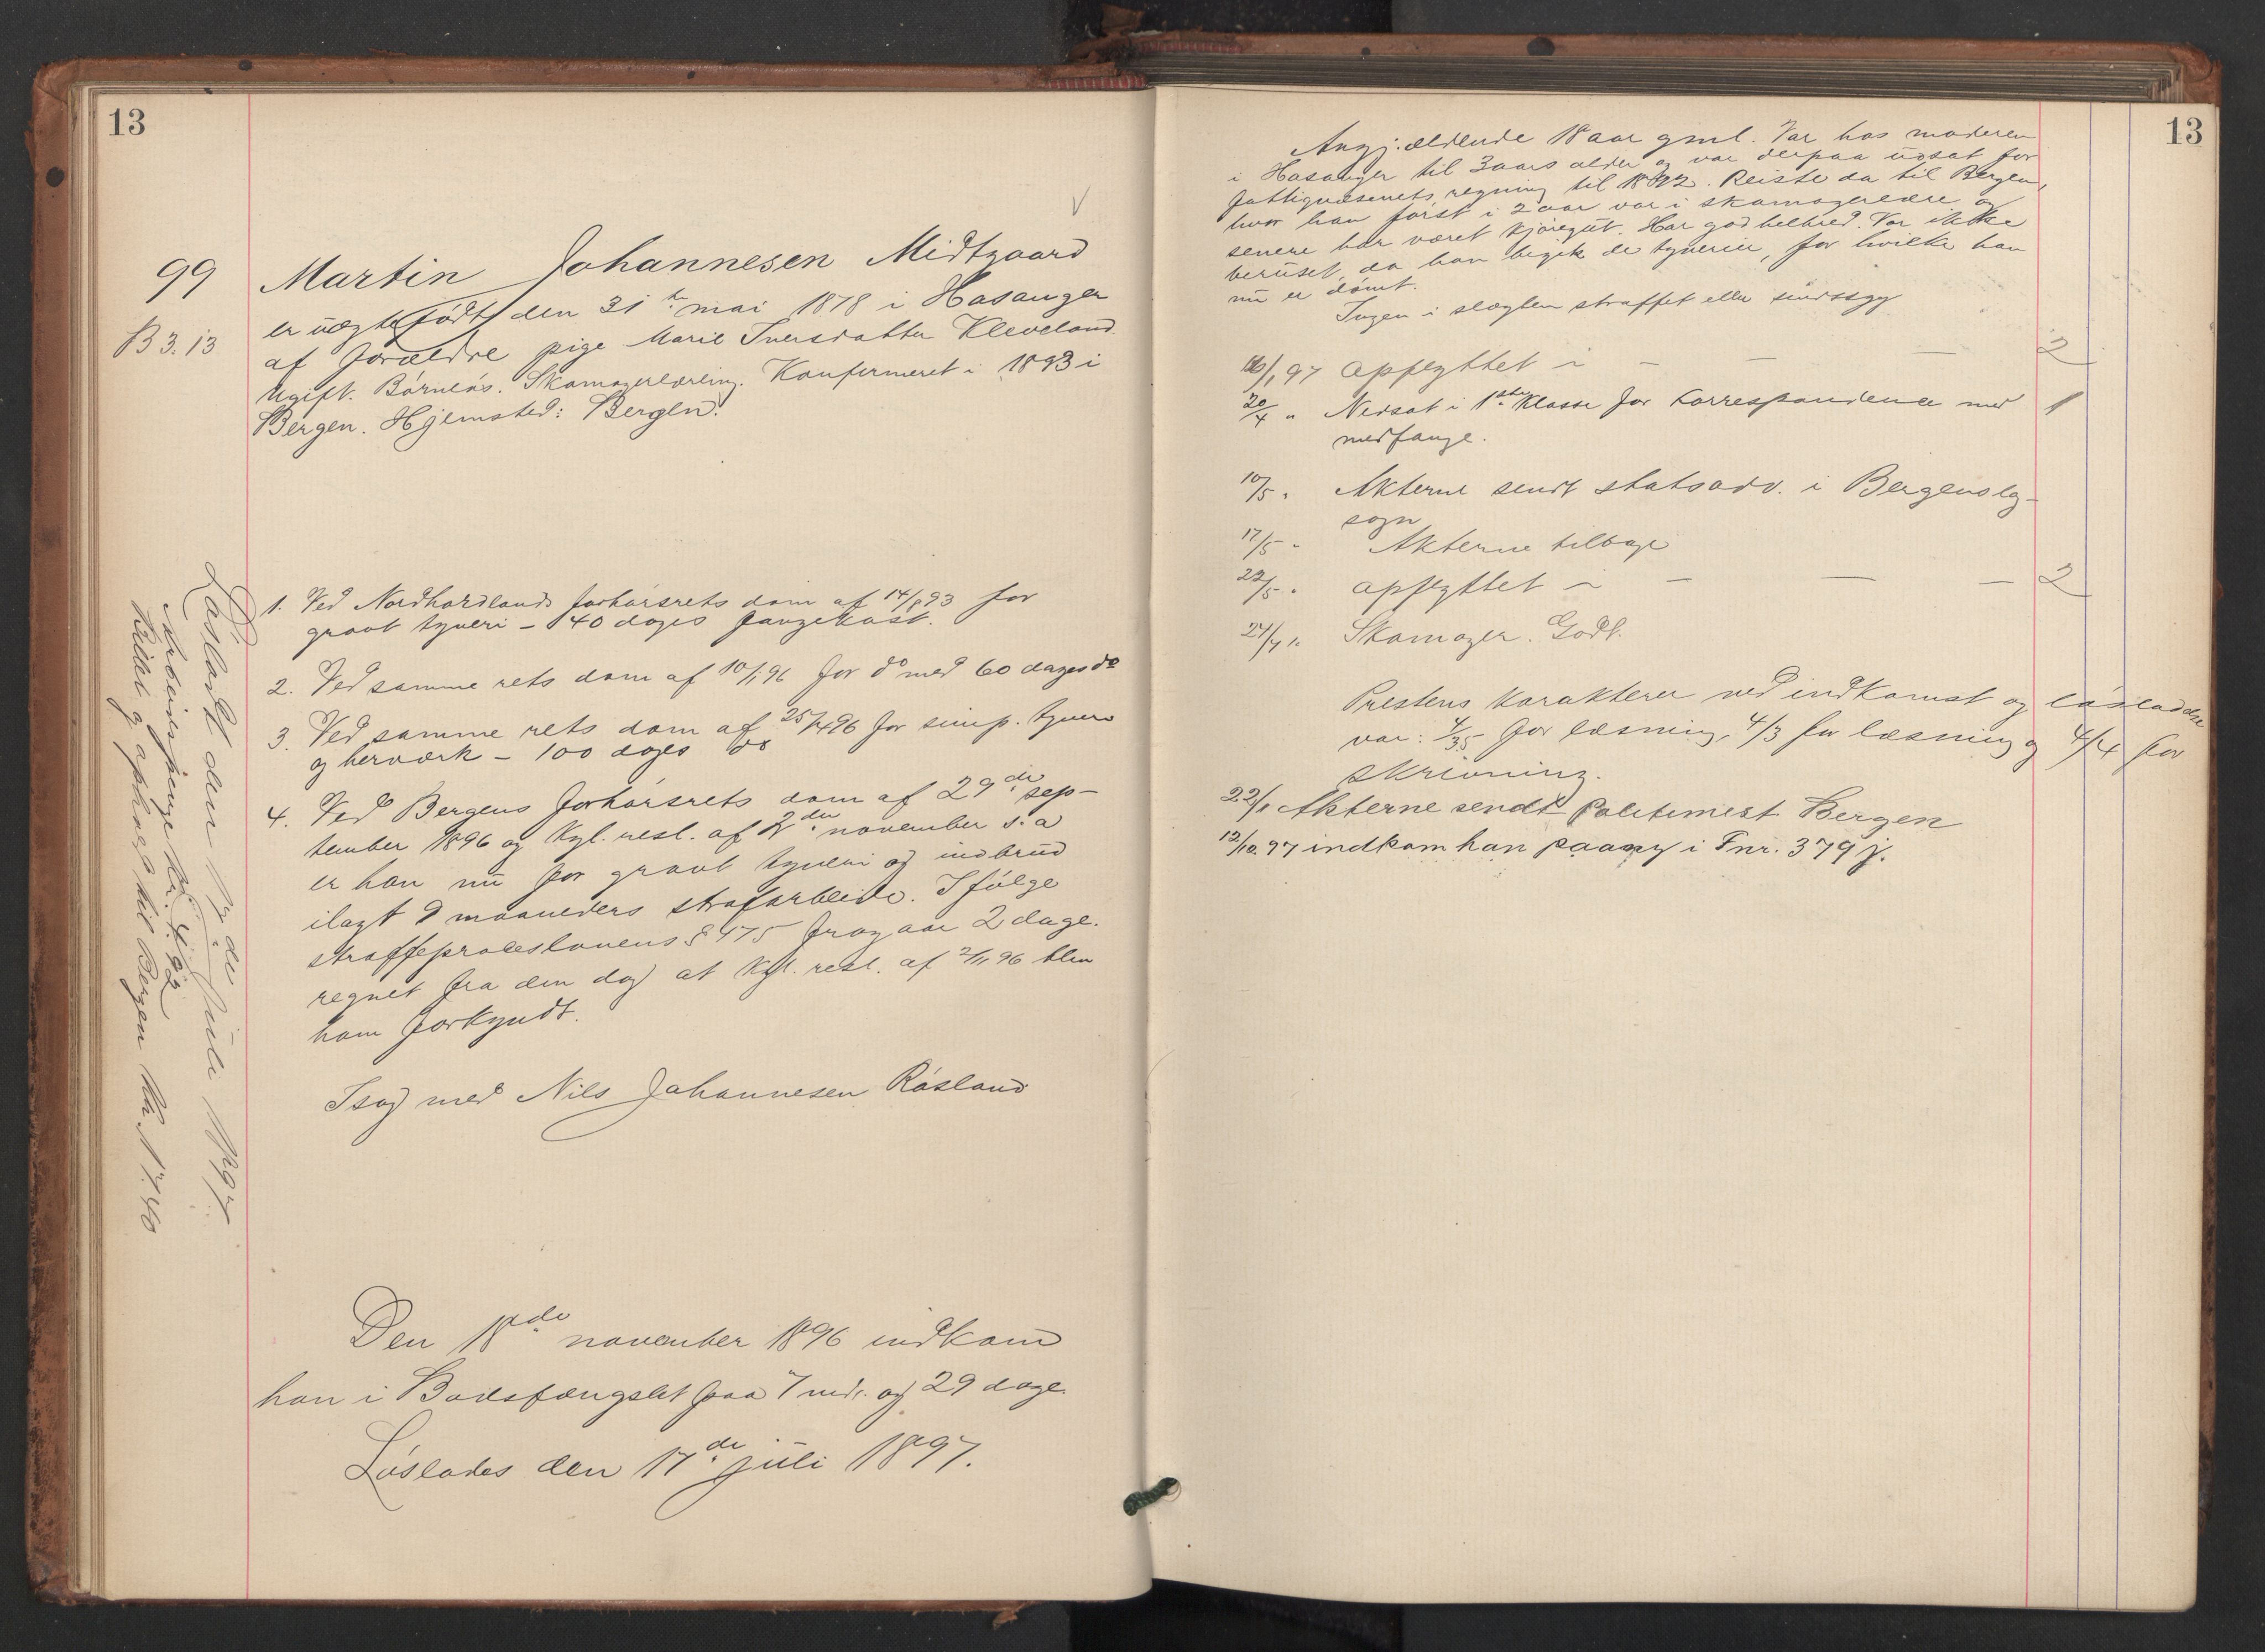 13
99
B 3.13
Martin Johannesen Midtgaard
er uægte født den 31te mai 1878 i Hosanger
af forældre pige Marie Iversdatter Kleveland.
Ugift. Børnløs. Skomagerlærling. Konfirmeret i 1893 i
Bergen. Hjemsted: Bergen.
1. Ved Nordhordlands forhørsrets dom af 14/8 93 for
grovt tyveri – 40 dages fangekost.
2. Ved samme rets dom af 10/1 96 for do med 60 dages do
3. Ved samme rets dom af 25/4 96 for simp. tyveri
og herværk – 100 dages do
4. Ved Bergens forhørsrets dom af 29de sep-
tember 1896 og kgl. resl. af 2den november s. a
er han nu for grovt tyveri og indbrud
ilagt 9 maaneders strafarbeide. Ifølge
straffeproceslovens § 475 fragaar 2 dage.
regnet fra den dag at kgl. resl. af 2/11 96 blev
ham forkyndt.
I sag med Nils Johannesen Røsland
Den 18de november 1896 indkom
han i Bodsfængslet paa 7 mdr. og 29 dage.
Løslades den 17de juli 1897.
Løsladt den 17de juli 1897
Arbeidspenge kr. 4.92
Billet og ophold til Bergen kr. 17.40
13
Angj:ældende 18 aar gml. Var hos moderen
i Hosanger til 3 aars alder og var derpaa udsat for
fattigvæsenets regning til 1892. Reiste da til Bergen,
hvor han først i 2 aar var i skomagerlære og
senere har været kjøregut. Har god helbred. Var ikke
beruset, da han begik de tyverier, for hvilke han
nu er dømt.
Ingen i slægten straffet eller sindssyg
16/1 97 Opflyttet i – – – 2
20/4 " Nedsat i 1ste klasse for korrespondence med 1
medfange.
10/5 " Akterne sendt statsadv. i Bergens lag-
sogn
17/5 " Akterne tilbage
22/5 " Opflyttet i – – – 2
24/7 " Skomager. Godt.
Prestens karakterer ved indkomst og løsladelse
var: 4/3.5 for læsning, 4/3 for læsning og 4/4 for
skrivning.
22/1 Akterne sendt Politimest. Bergen
12/10.97 indkom han paany i Fnr. 379 j.